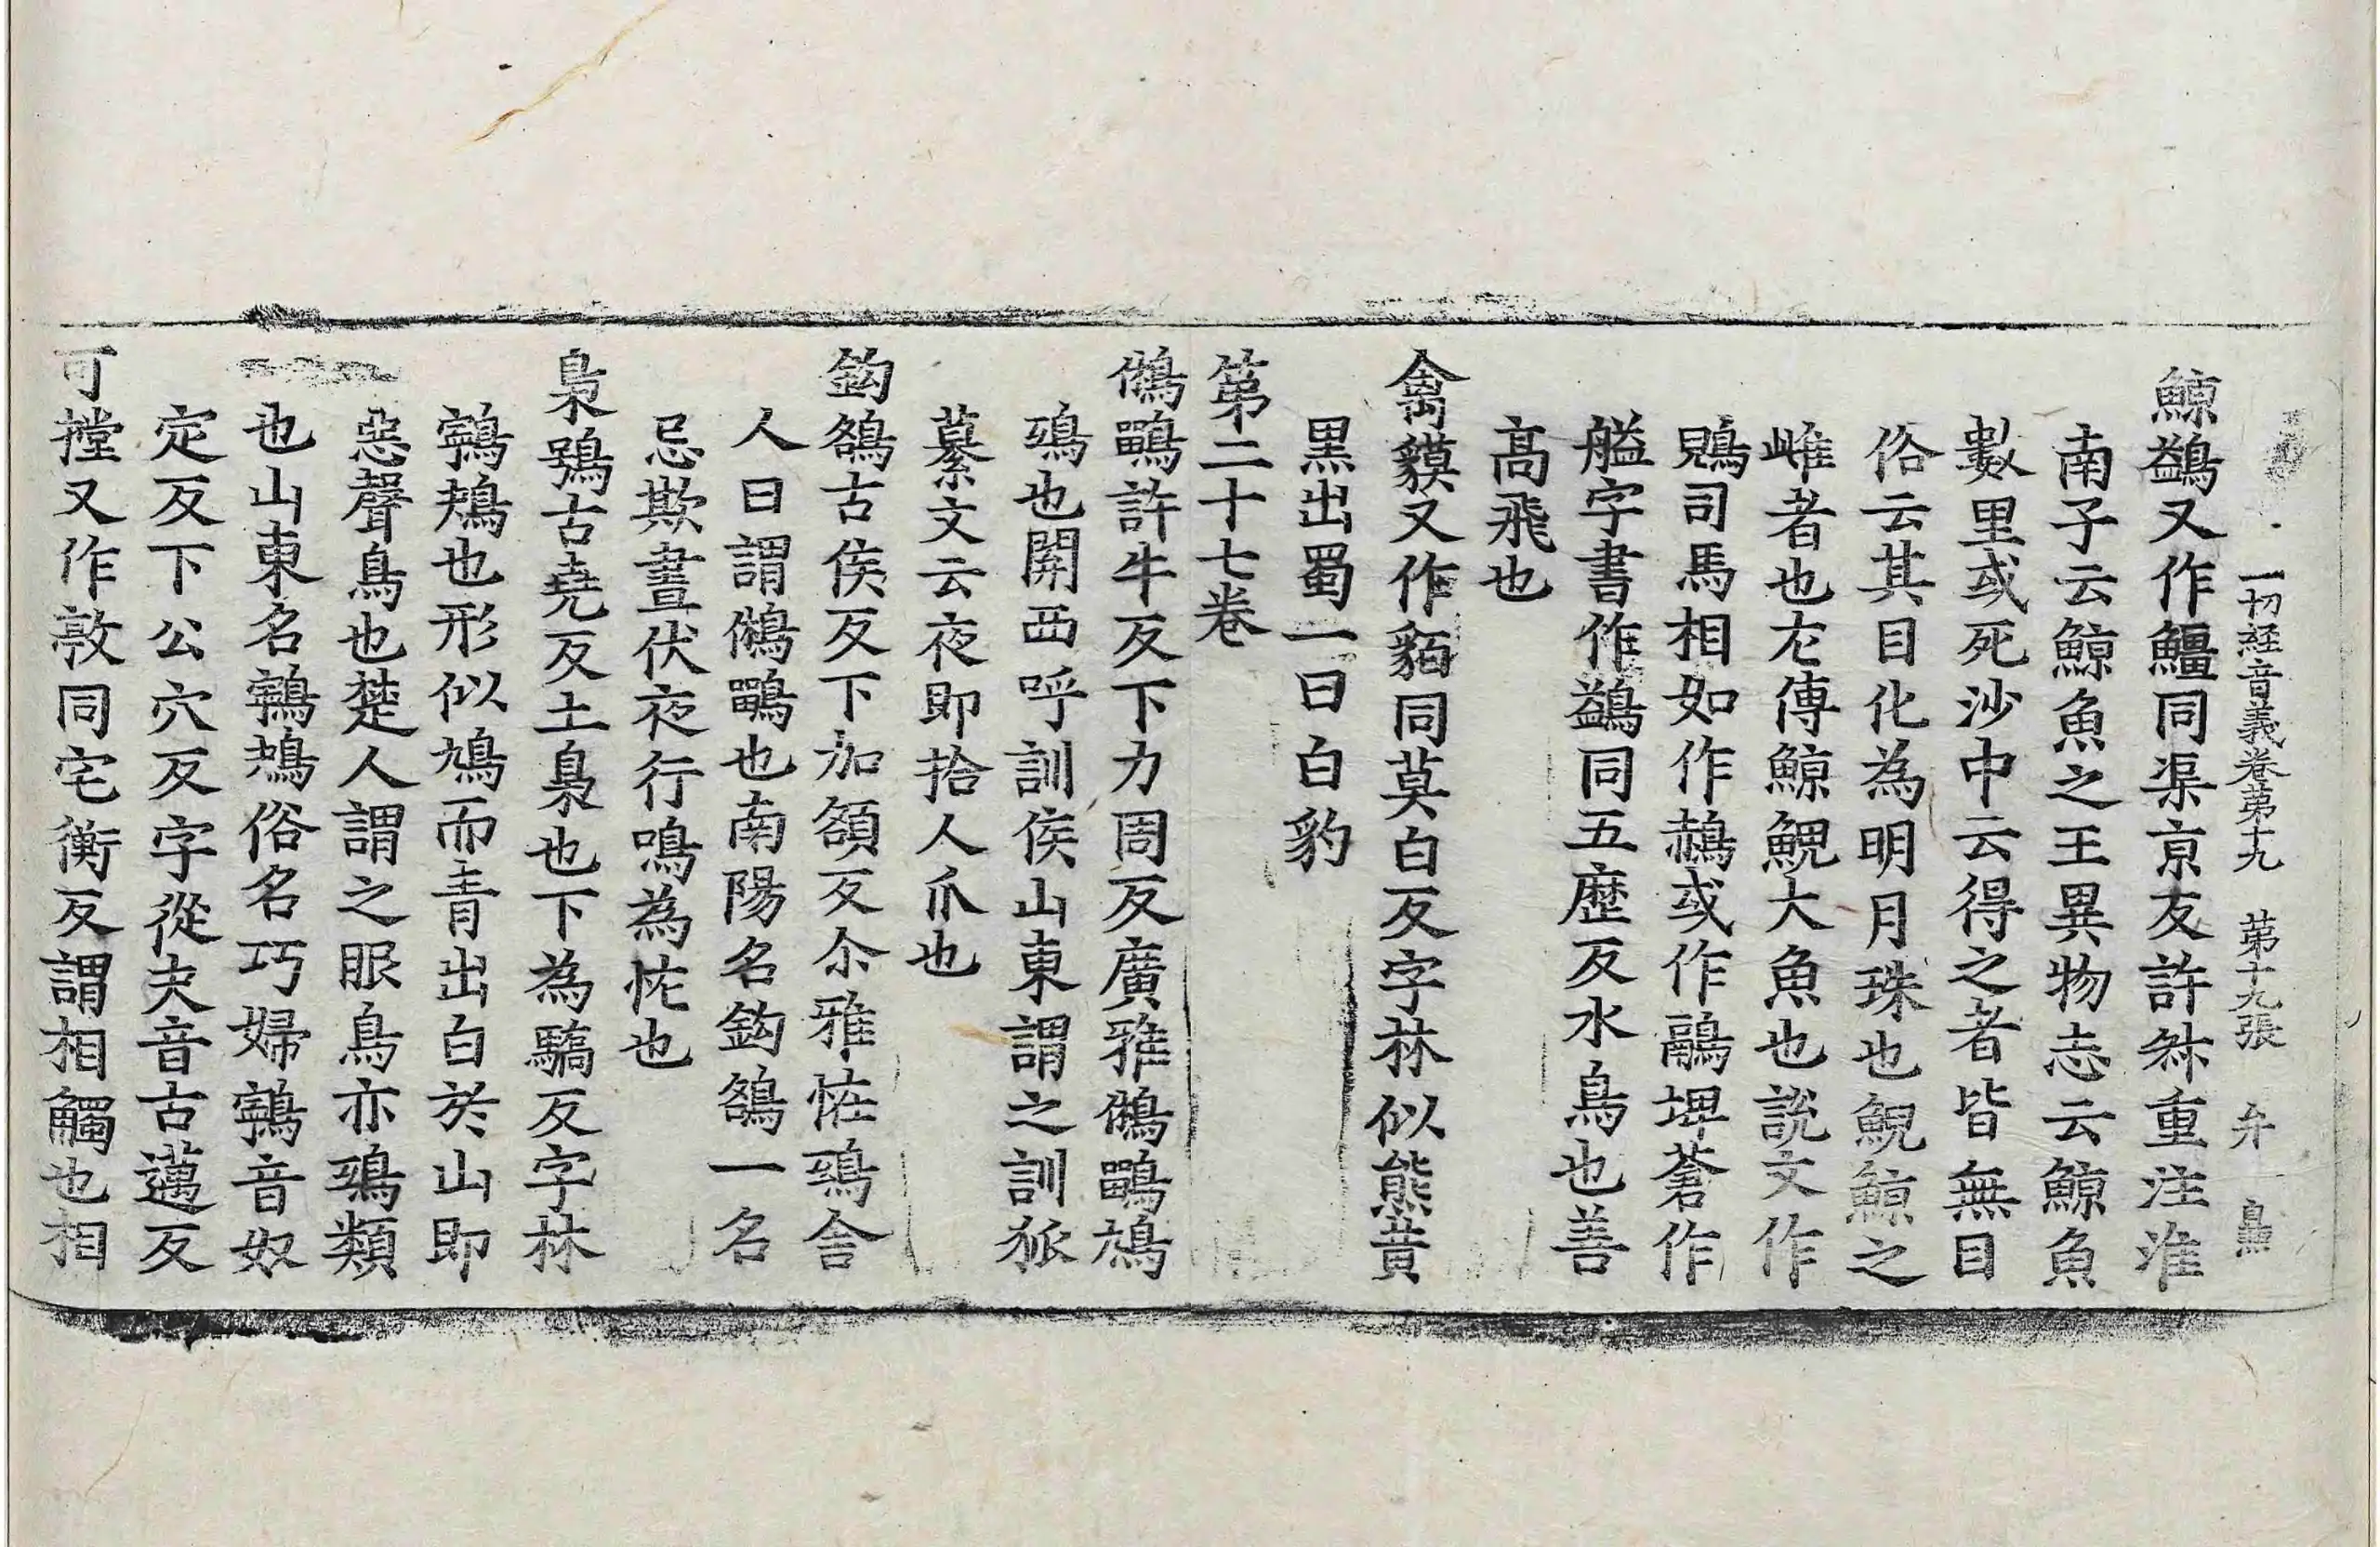 一切経音義卷第十九　第十九張　弁　
鯨鷁又作䲔同渠京友許叔重注淮
南子云鯨魚之王異物志云鯨魚
數里或死沙中云得之者皆無目
俗云其目化為明月珠也鯢鯨之
雌者也左傳鯨鯢大魚也說文作
鶃司馬相如作鷊或作鷊埤蒼作
艗字書作鷁同五歷反水鳥也善
高飛也
禽貘又作貊同莫白反字林似熊黃
黑出蜀一曰白豹
第二十七卷
鵂鶹許牛反下力周反廣雅鵂鶹鴆
鵶也關西呼訓侯山東謂之訓狐
纂文云夜即拾人爪也
鉤鵅古侯反下加額反尒雅怪鵄舍
人曰謂鵂鶹也南陽名鉤鵅一名
忌欺晝伏夜行鳴為恠也
梟鴞古堯反土梟也下為驕反字林
鸋鴂也形似鳩而青出白於山即
惡聲鳥也楚人謂之眼鳥亦鵄類
也山東名鸋鴂俗名巧婦鸋音奴
定反下公穴反字從夬音古邁反
可摚又作敦同宅衡反謂相觸也相